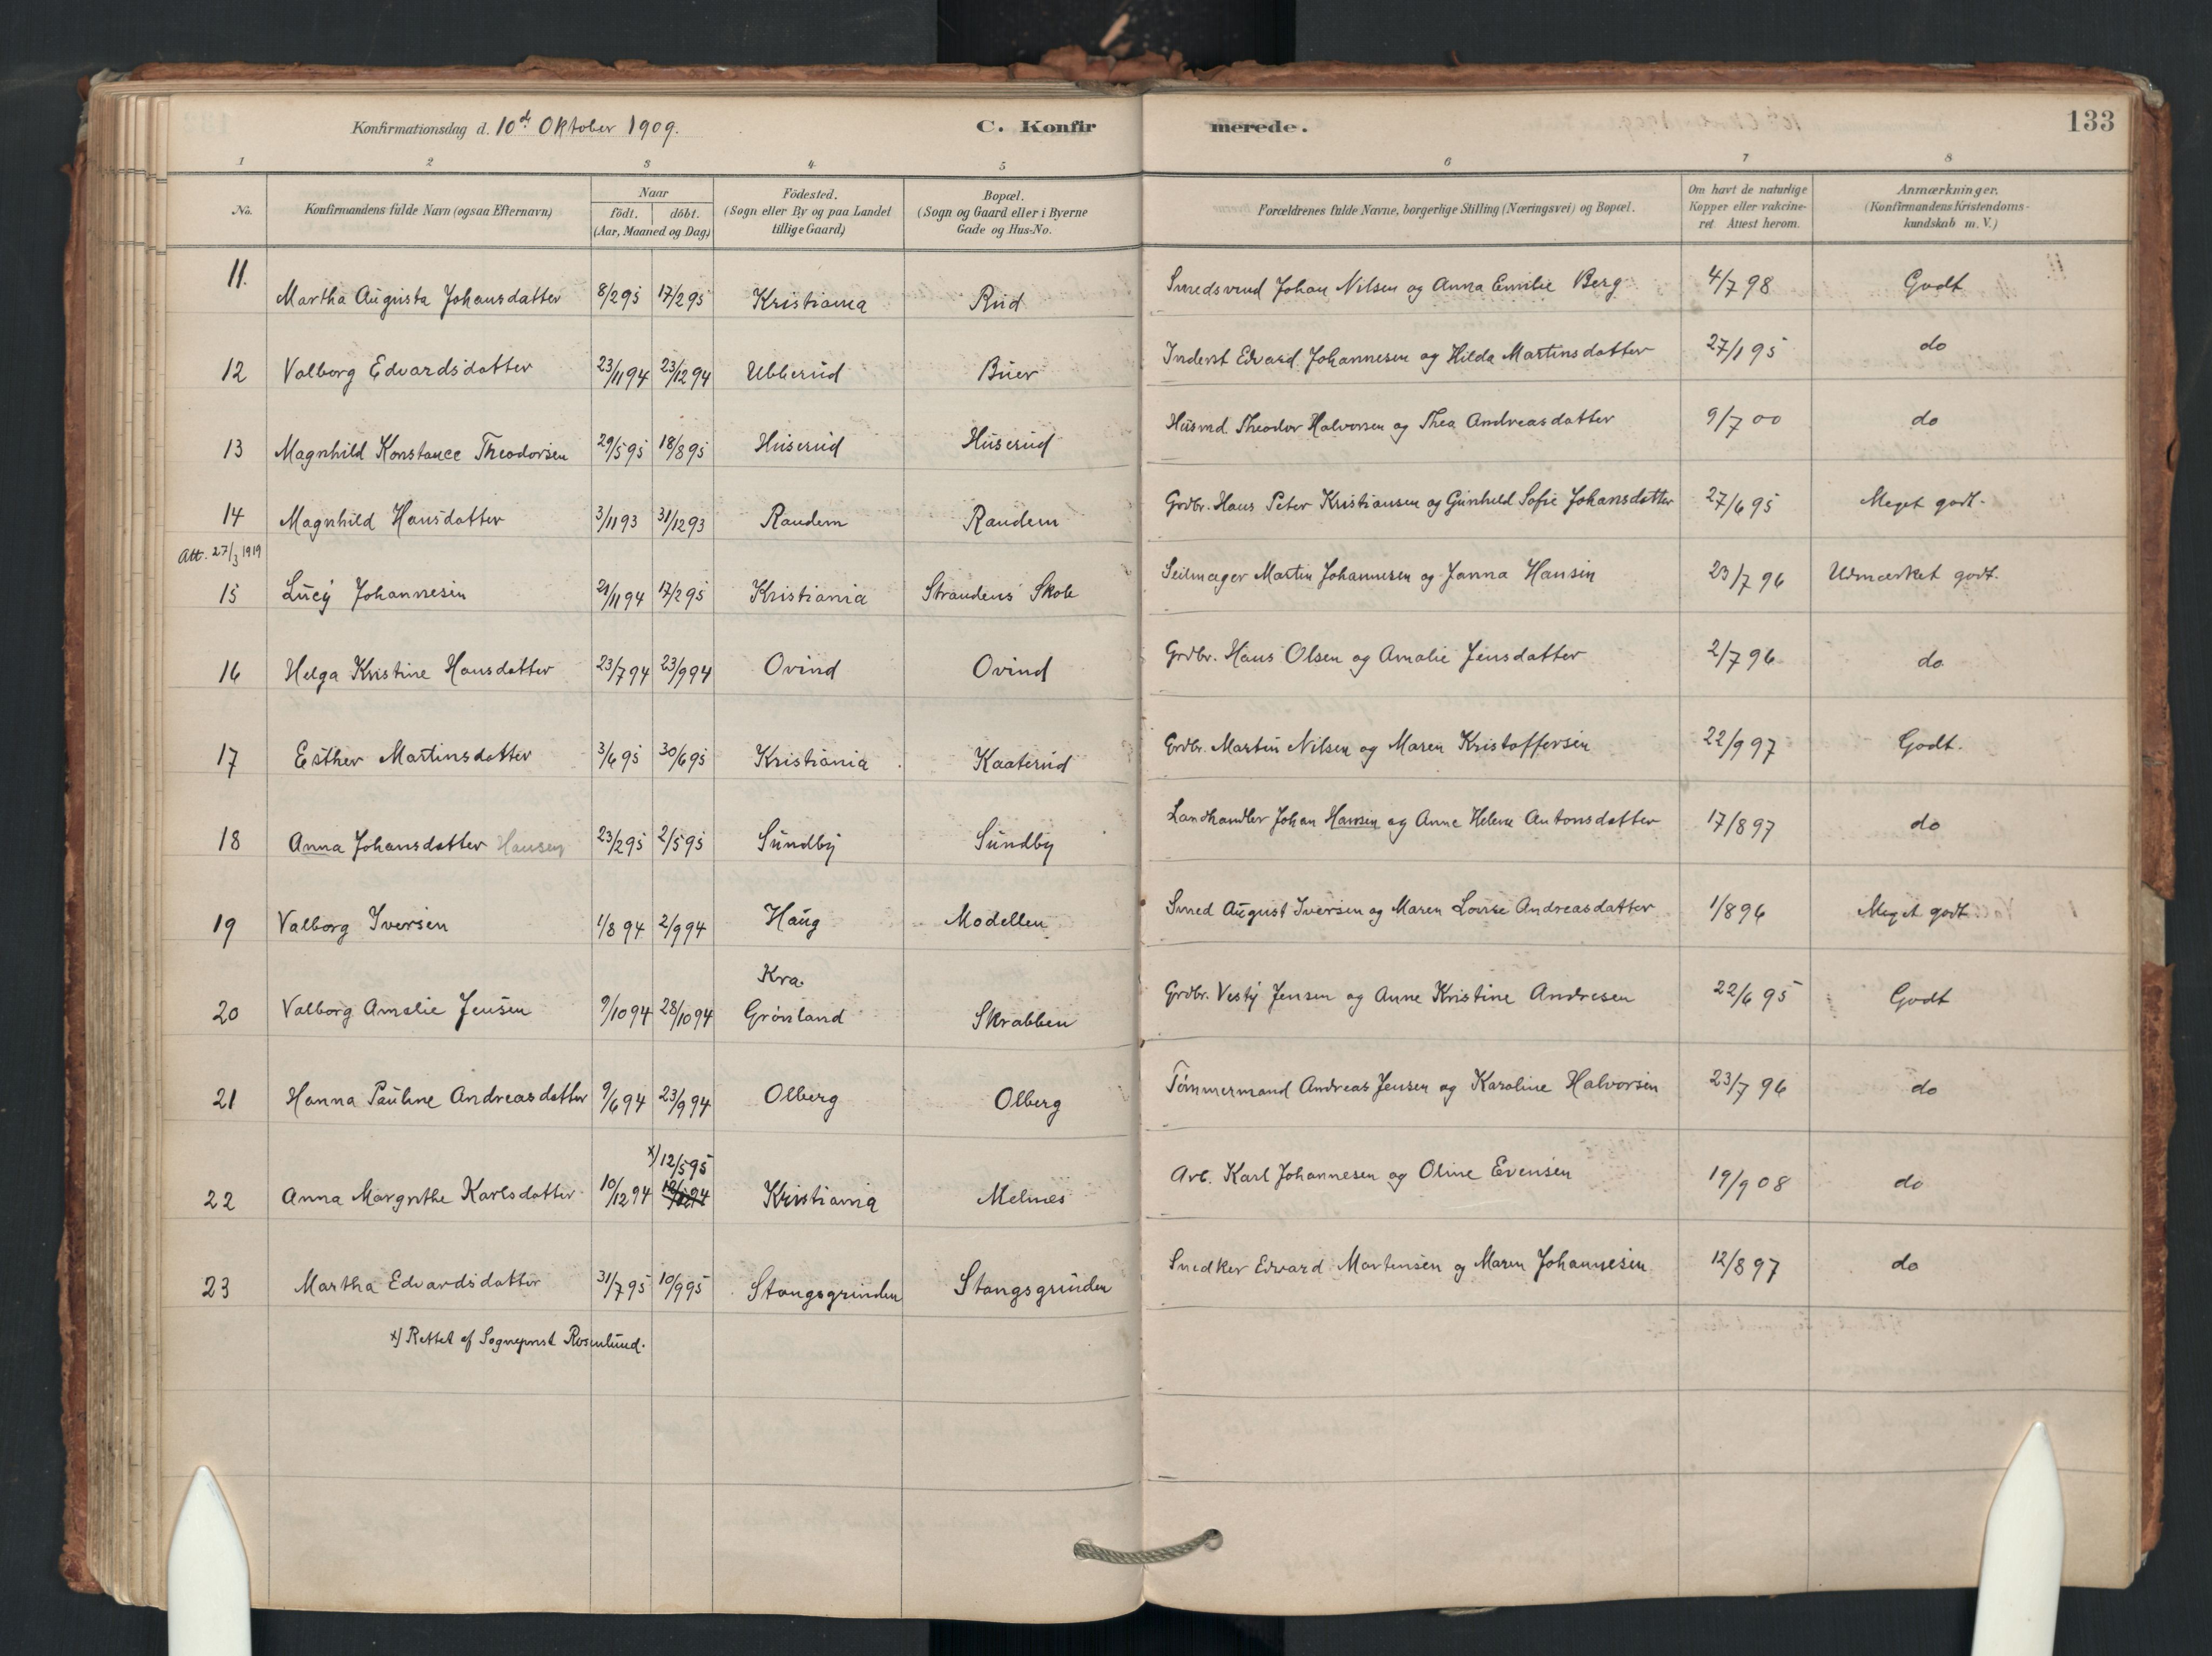 Konfirmationsdag d. 10de Oktober 1909. C. Konfirmerede. 133
1 2 3 4 5 6 7 8
No. Konfirmandens fulde Navn (ogsaa Efternavn) Naar födt. döbt. (Aar, Maaned og Dag) Födested. (Sogn eller By og paa Landet tillige Gaard) Bopæl. (Sogn og Gaard eller i Byerne Gade og Hus-No. Forældrenes fulde Navne, borgerlige Stilling (Næringsvei) og Bopæl. Om havt de naturlige Kopper eller vakcineret. Attest herom. Anmærkninger. (Konfirmandens Kristendomskundskab m. V.)
11. Martha Augusta Johansdatter 8/2 95 17/2 95 Kristiania Rud Smedsvend Johan Nilsen og Anna Emilie Berg 4/7 98 Godt
12 Valborg Edvardsdatter 23/11 94 23/12 94 Ubberud Buer Inderst Edvard Johannesen og Hilda Martinsdatter 27/1 95 do
13 Magnhild Konstance Theodorsen 29/5 95 18/8 95 Huserud Huserud Husmd. Theodor Halvorsen og Thea Andreasdatter 9/7 00 do
14 Magnhild Hansdatter 3/11 93 31/12 93 Raudem Raudem Grdbr. Hans Peter Kristiansen og Gunhild Sofie Johansdatter 27/6 95 Meget godt.
Att. 27/3 1919
15 Lucy Johannesen 21/11 94 17/2 95 Kristiania Strandens Skole Seilmager Martin Johannesen og Janna Hansen 23/7 96 Udmærket godt.
16 Helga Kristine Hansdatter 23/7 94 23/9 94 Ovind Ovind Grdbr. Hans Olsen og Amalie Jensdatter 2/7 96 do
17 Esther Martinsdatter 3/6 95 30/6 95 Kristiania Kaaterud Grdbr. Martin Nilsen og Maren Kristoffersen 22/9 97 Godt.
18 Anna Johansdatter Hansen 23/2 95 2/5 95 Sundby Sundby Landhandler Johan Hansen og Anne Helene Antonsdatter 17/8 97 do
19 Valborg Iversen 1/8 94 2/9 94 Haug Modellen Smed August Iversen og Maren Lovise Andreasdatter 1/8 96 Meget godt
Kra.
20 Valborg Amalie Jensen 9/10 94 28/10 94 Grønland Skrabben Grdbr. Vesty Jensen og Anne Kristine Andresen 22/6 95 Godt
21 Hanna Pauline Andreasdatter 9/6 94 23/9 94 Olberg Olberg Tømmermand Andreas Jensen og Karoline Halvorsen 23/7 96 do
x) 12/5 95
22 Anna Margrethe Karlsdatter 10/12 94 Kristiania Melnes Arb. Karl Johannesen og Oline Evensen 19/9 08 do
23 Martha Edvardsdatter 31/7 95 10/9 95 Stangsgrinden Stangsgrinden Snedker Edvard Martensen og Maren Johannesen 12/8 97 do
x) Rettet af Sogneprest Rosenlund.